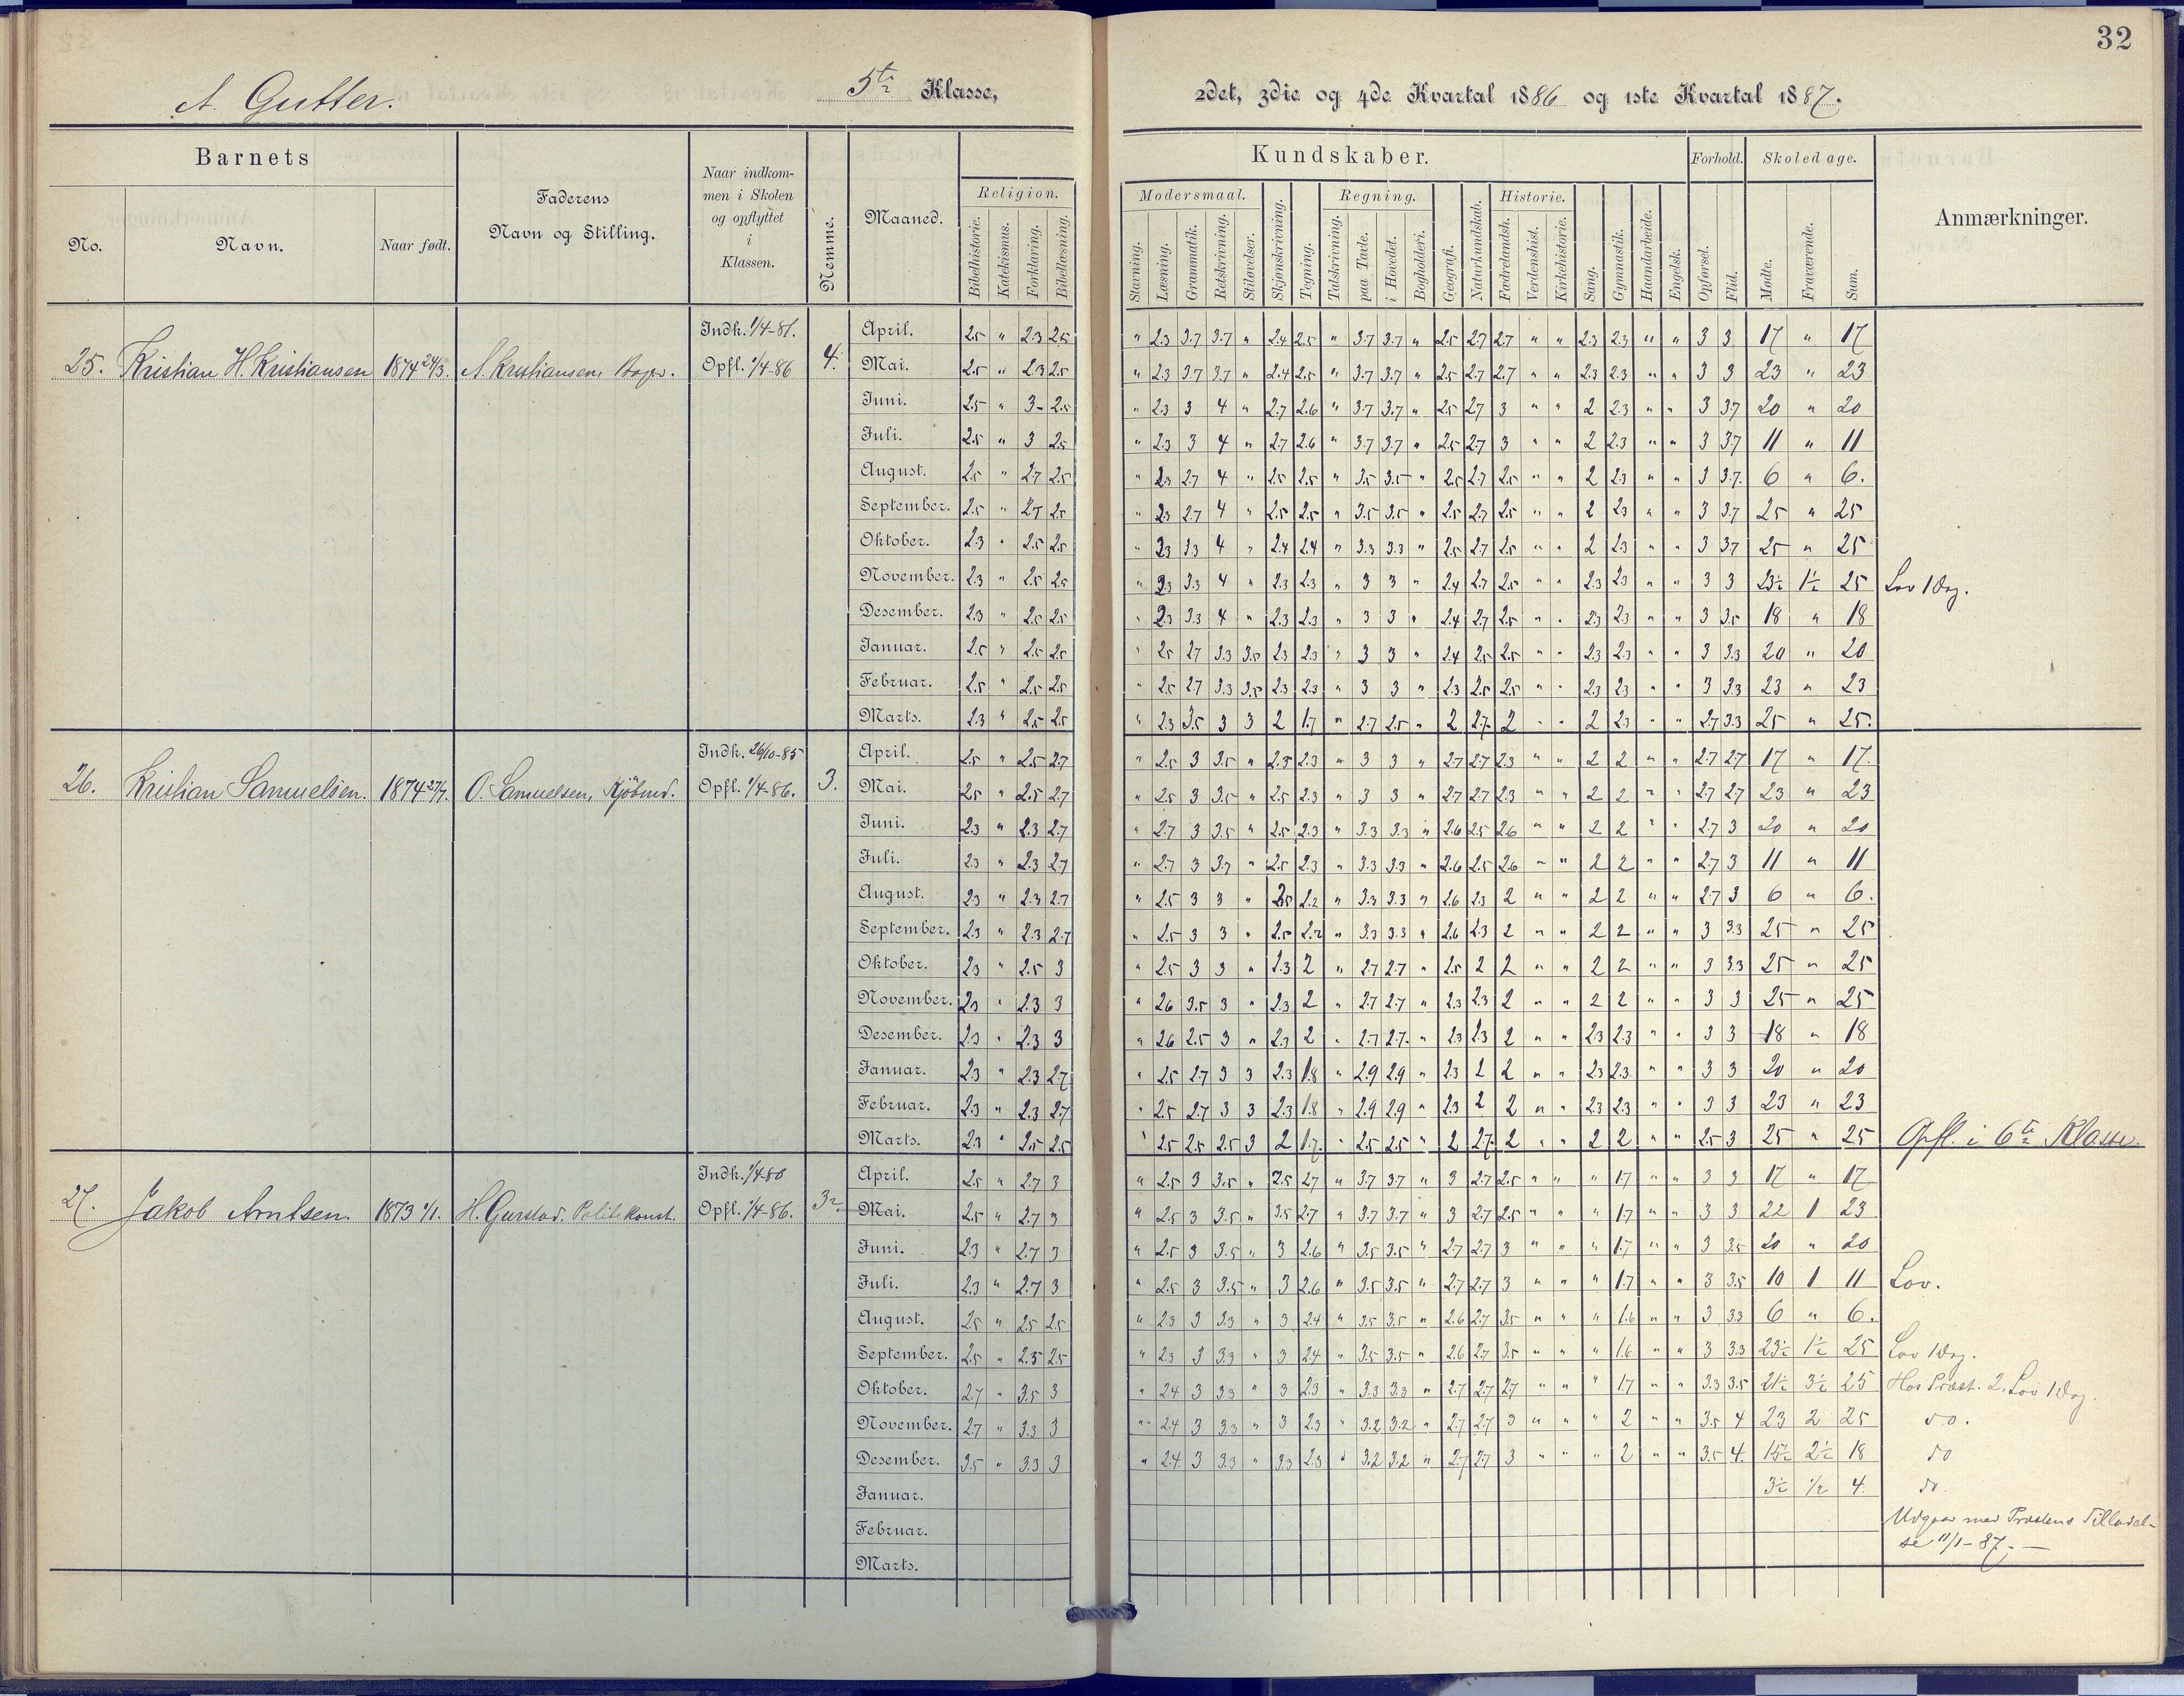 32
A. Gutter.
5te Klasse,
2det, 3die og 4de Kvartal 1886 og 1ste Kvartal 1887.
Barnets
No.
Navn.
Naar født.
Faderens
Navn og Stilling.
Naar indkom-
men i Skolen
og opflyttet
i
Klassen.
Nemme.
Maaned.
Religion.
Bibelhistorie.
Katekismus.
Forklaring.
Bibellæsning.
Kundskaber.
Modersmaal.
Stavning.
Læsning.
Grammatik.
Retskrivning.
Stiløvelser.
Skjønskrivning.
Tegning.
Regning.
Talskrivning.
paa Tavle.
i Hovedet.
Bogholderi.
Geografi.
Naturkundskab.
Historie.
Fædrelandsh.
Verdenshist.
Kirkehistorie.
Sang.
Gymnastik.
Haandarbeide.
Engelsk.
Forhold.
Opførsel.
Flid.
Skoledage.
Mødte.
Fraværende.
Sum.
Anmærkninger.
25. Kristian H. Kristiansen 1874 24/3. A. Kristiansen, Bager.
Indk. 1/4-81.
Opfl. 1/4-86
4.
April. 2.5 " 2.3 2.5 " 2.3 3.7 3.7 " 2.4 2.5 " 3.7 3.7 " 2.5 2.7 2.7 " " 2.3 2.3 " " 3 3 17 " 17
Mai. 2.5 " 2.3 2.5 " 2.3 3.7 3.7 " 2.4 2.5 " 3.7 3.7 " 2.5 2.7 2.7 " " 2.3 2.3 " " 3 3 23 " 23
Juni. 2.5 " 3 2.5 " 2.3 3 4 " 2.7 2.6 " 3.7 3.7 " 2.5 2.7 3 " " 2 2.3 " " 3 3.7 20 " 20
Juli. 2.5 " 3 2.5 " 2.3 3 4 " 2.7 2.6 " 3.7 3.7 " 2.5 2.7 3 " " 2 2.3 " " 3 3.7 11 " 11
August. 2.5 " 2.7 2.5 " 2.3 2.7 4 " 2.5 2.5 " 3.5 3.5 " 2.5 2.7 2.5 " " 2 2.3 " " 3 3.7 6 " 6.
September. 2.5 " 2.7 2.5 " 2.3 2.7 4 " 2.5 2.5 " 3.5 3.5 " 2.5 2.7 2.5 " " 2 2.3 " " 3 3.7 25 " 25
Oktober. 2.3 " 2.5 2.5 " 2.3 3.3 4 " 2.4 2.4 " 3.3 3.3 " 2.5 2.7 2.5 " " 2 2.3 " " 3 3.7 25 " 25
November. 2.3 " 2.5 2.5 " 2.3 3.3 4 " 2.3 2.3 " 3 3 " 2.4 2.7 2.5 " " 2.3 2.3 " " 3 3 23½ 1½ 25 Lov 1 Dag.
Desember. 2.3 " 2.5 2.5 " 2.3 3.3 4 " 2.3 2.3 " 3 3 " 2.4 2.7 2.5 " " 2.3 2.3 " " 3 3.5 18 " 18
Januar. 2.5 " 2.5 2.5 " 2.5 2.7 3.3 3.5 2.3 2.3 " 3 3 " 2.4 2.5 2.5 " " 2.3 2.3 " " 3 3.3 20 " 20
Februar. 2.5 " 2.5 2.5 " 2.5 2.7 3.3 3.5 2.3 2.3 " 3 3 " 2.3 2.5 2.5 " " 2.3 2.3 " " 3 3.3 23 " 23
Marts. 2.3 " 2.5 2.5 " 2.3 3.5 3 3 2 1.7 " 2.7 2.5 " 2 2.7 2 " " 2 2.3 " " 2.7 3.3 25 " 25.
26. Kristian Samuelsen. 1874 27/7. O. Samuelsen, Kjøbmd.
Indk. 26/10-85
Opfl. 1/4-86.
3.
April. 2.5 " 2.5 2.7 " 2.5 3 3.5 " 2.5 2.3 " 3 3 " 2.7 2.7 2.3 " " 2 2 " " 2.7 2.7 17 " 17.
Mai. 2.5 " 2.5 2.7 " 2.5 3 3.5 " 2.5 2.3 " 3 3 " 2.7 2.7 2.3 " " 2 2 " " 2.7 2.7 23 " 23
Juni. 2.3 " 2.3 2.7 " 2.7 3 3.5 " 2.5 2.3 " 3.3 3.3 " 2.6 2.5 2.6 " " 2 2 " " 2.7 3 20 " 20
Juli. 2.3 " 2.3 2.7 " 2.7 3 3.7 " 2.5 2.3 " 3.3 3.3 " 2.6 2.5 2.6 " " 2 2 " " 2.7 3 11 " 11
August. 2.3 " 2.3 2.7 " 2.5 3 3 " 2.5 2.2 " 3.3 3.3 " 2.6 2.3 2 " " 2 2 " " 2.7 3 6 " 6.
September. 2.3 " 2.3 2.7 " 2.5 3 3 " 2.5 2.2 " 3.3 3.3 " 2.6 2.3 2 " " 2 2 " " 3 3.3 25 " 25
Oktober. 2.3 " 2.5 3 " 2.5 3 3 " 2.3 2 " 2.7 2.7 " 2.5 2 2 " " 2 2 " " 3 3.3 25 " 25
November. 2.3 " 2.3 3 " 2.6 3.5 3 " 2.3 2 " 2.7 2.7 " 2.3 2.3 2 " " 2 2 " " 3 3 25 " 25
Desember. 2.3 " 2.3 3 " 2.6 2.5 3 " 2.3 2 " 2.7 2.7 " 2.3 2.3 2 " " 2.3 2.3 " " 3 3 18 " 18
Januar. 2.3 " 2.3 2.7 " 2.5 2.7 3 3 2.3 1.8 " 2.9 2.9 " 2.3 2 2 " " 2.3 2.3 " " 3 3 20 " 20
Februar. 2.3 " 2.3 2.7 " 2.5 2.7 3 3 2.3 1.8 " 2.9 2.9 " 2.3 2 2 " " 2.3 2.3 " " 3 3 23 " 23
Marts. 2.3 " 2.5 2.5 " 2.5 2.5 2.5 3 2 1.7 " 2.5 2.5 " 2 2.7 2 " " 2 2 " " 2.5 3 25 " 25 Opfl. i 6te Klasse.
27. Jakob Arntsen. 1873 1/1. H. Gurstad, Politikonst.
Indk. 1/4-80
Opfl. 1/4-86.
3
April. 2.5 " 2.7 3 " 2.5 3 3.5 " 3.5 2.7 " 3.7 3.7 " 3 2.7 2.5 " " " 1.7 " " 3 3 17 " 17
Mai. 2.5 " 2.7 3 " 2.5 3 3.5 " 3.5 2.7 " 3.7 3.7 " 3 2.7 2.5 " " " 1.7 " " 3 3 22 1 23
Juni. 2.3 " 2.7 3 " 2.5 3 3.5 " 3 2.6 " 3.5 3.5 " 2.7 2.7 3 " " " 1.7 " " 3 3.5 20 " 20
Juli. 2.3 " 2.7 3 " 2.5 3 3.5 " 3 2.6 " 3.5 3.5 " 2.7 2.7 3 " " " 1.7 " " 3 3.5 10 1 11 Lov.
August. 2.5 " 2.5 2.5 " 2.3 3 3.3 " 3 2.4 " 3.5 3.5 " 2.6 2.7 3.5 " " " 1.6 " " 3 3.3 6 " 6.
September. 2.5 " 2.5 2.5 " 2.3 3 3.3 " 3 2.4 " 3.5 3.5 " 2.6 2.7 3.5 " " " 1.6 " " 3 3.3 23½ 1½ 25 Lov 1 Dag.
Oktober. 2.7 " 3.5 3 " 2.4 3 3.3 " 3 2.3 " 3.3 3.3 " 2.7 2.7 2.7 " " " 1.7 " " 3.3 3.5 21½ 3½ 25 Hos Præst. 2, Lov 1 Dag
November. 2.7 " 3.3 3 " 2.4 3 3.3 " 3 2.3 " 3.2 3.2 " 2.7 2.7 3 " " " 2 " " 3.5 4 23 2 25 do.
Desember. 3.5 " 3.3 3 " 2.4 3 3.3 " 3.3 2.3 " 3.2 3.2 " 2.7 2.7 3 " " " 2 " " 3.5 4. 15½ 2½ 18 do
Januar. 3½ 1/2 4. do.
Februar. Udgaar med Præstens Tilladel-
se 11/1-87.—
Marts.